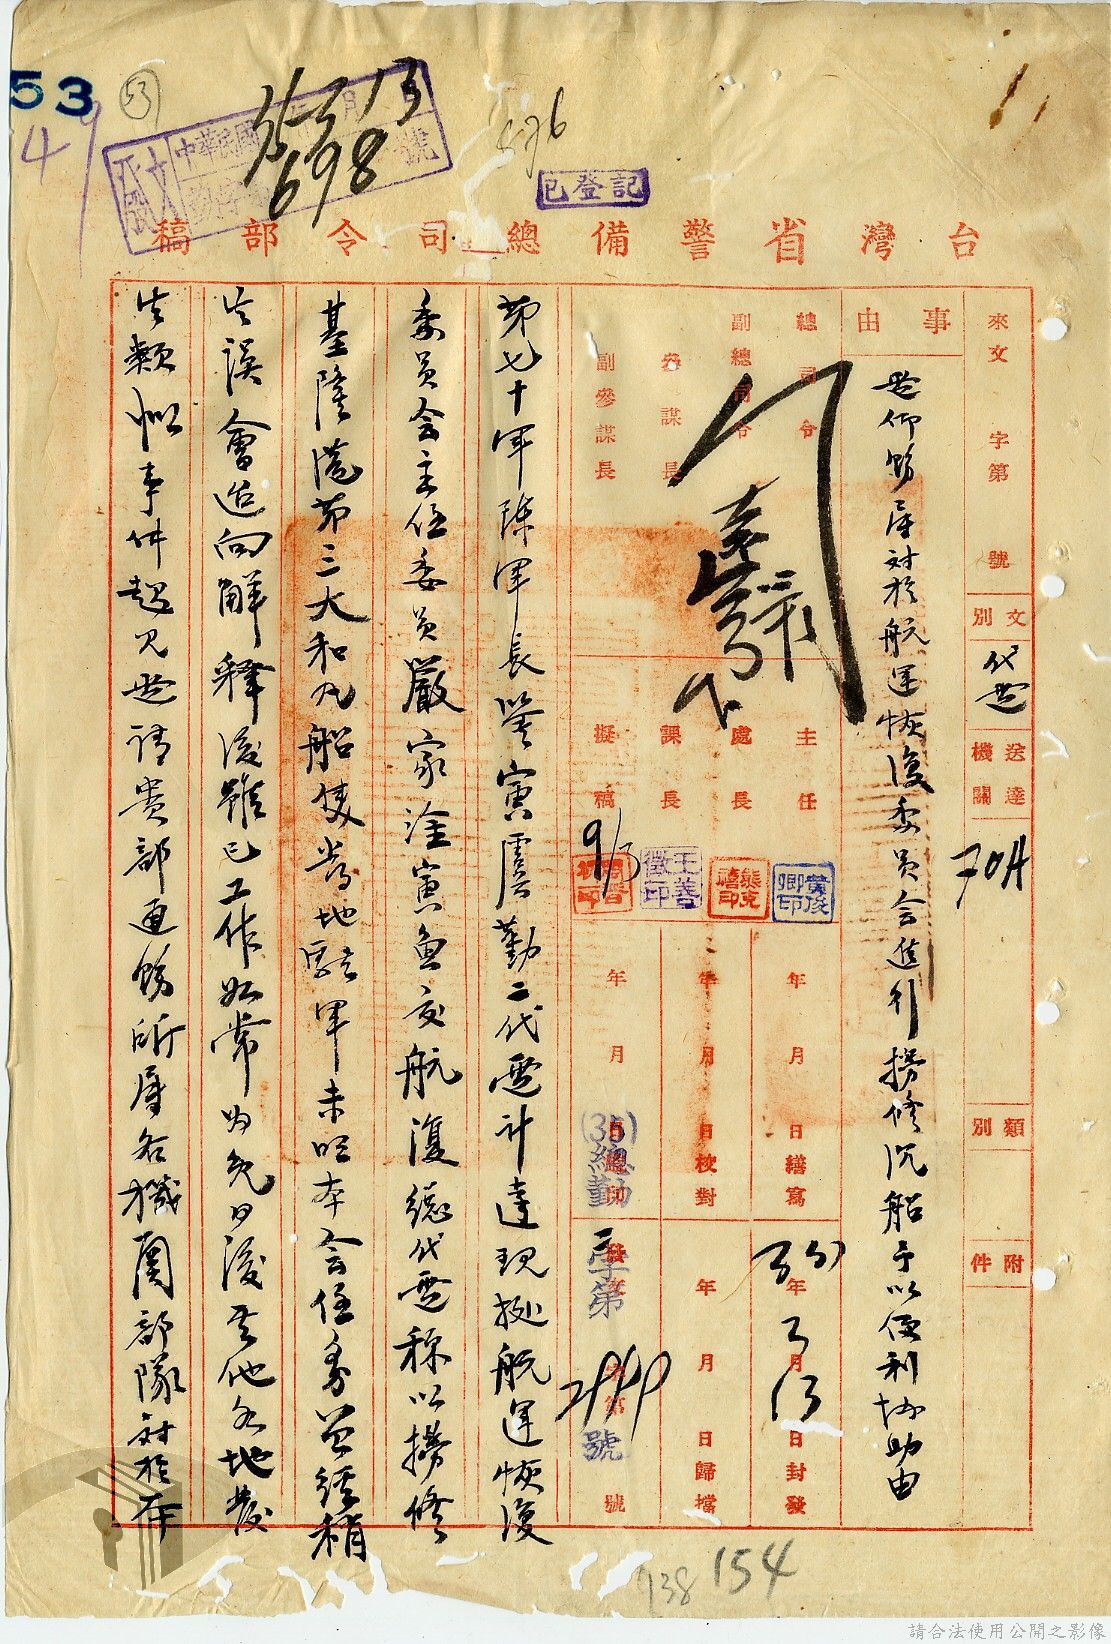 53
53
49
發文
中華民國 年 月 日
35 3 13
698
號
496
已登記
台灣省警備總司令部稿
來文 字第 號
文別
代電
送達機關
70A
類別
附件
事由
電仰飭屬對於航運恢復委員會進行撈修沉船予以便利協助由
總司令
副總司令
參謀長
副參謀長
主任
處長
課長
擬稿
9/3
黃俊卿印
熊克禧印
王善徵印
年 月 日繕寫
年 月 日校對
年 月
35年3月13日封發
年 月 日歸檔
(35)總勤
字第
號
第七十軍陳軍長鑒寅虞勤二代電計達現據航運恢復
委員會主任委員嚴家淦寅魚交航復總代電稱以撈修
基隆港第三大和丸船隻當地駐軍未明本會任務曾經稍
生誤會迨向解釋後雖已工作如常為免日後其他各地發
生類似事件起見電請貴部通飭所屬各機關部隊對於本
138
154
請合法使用公開之影像